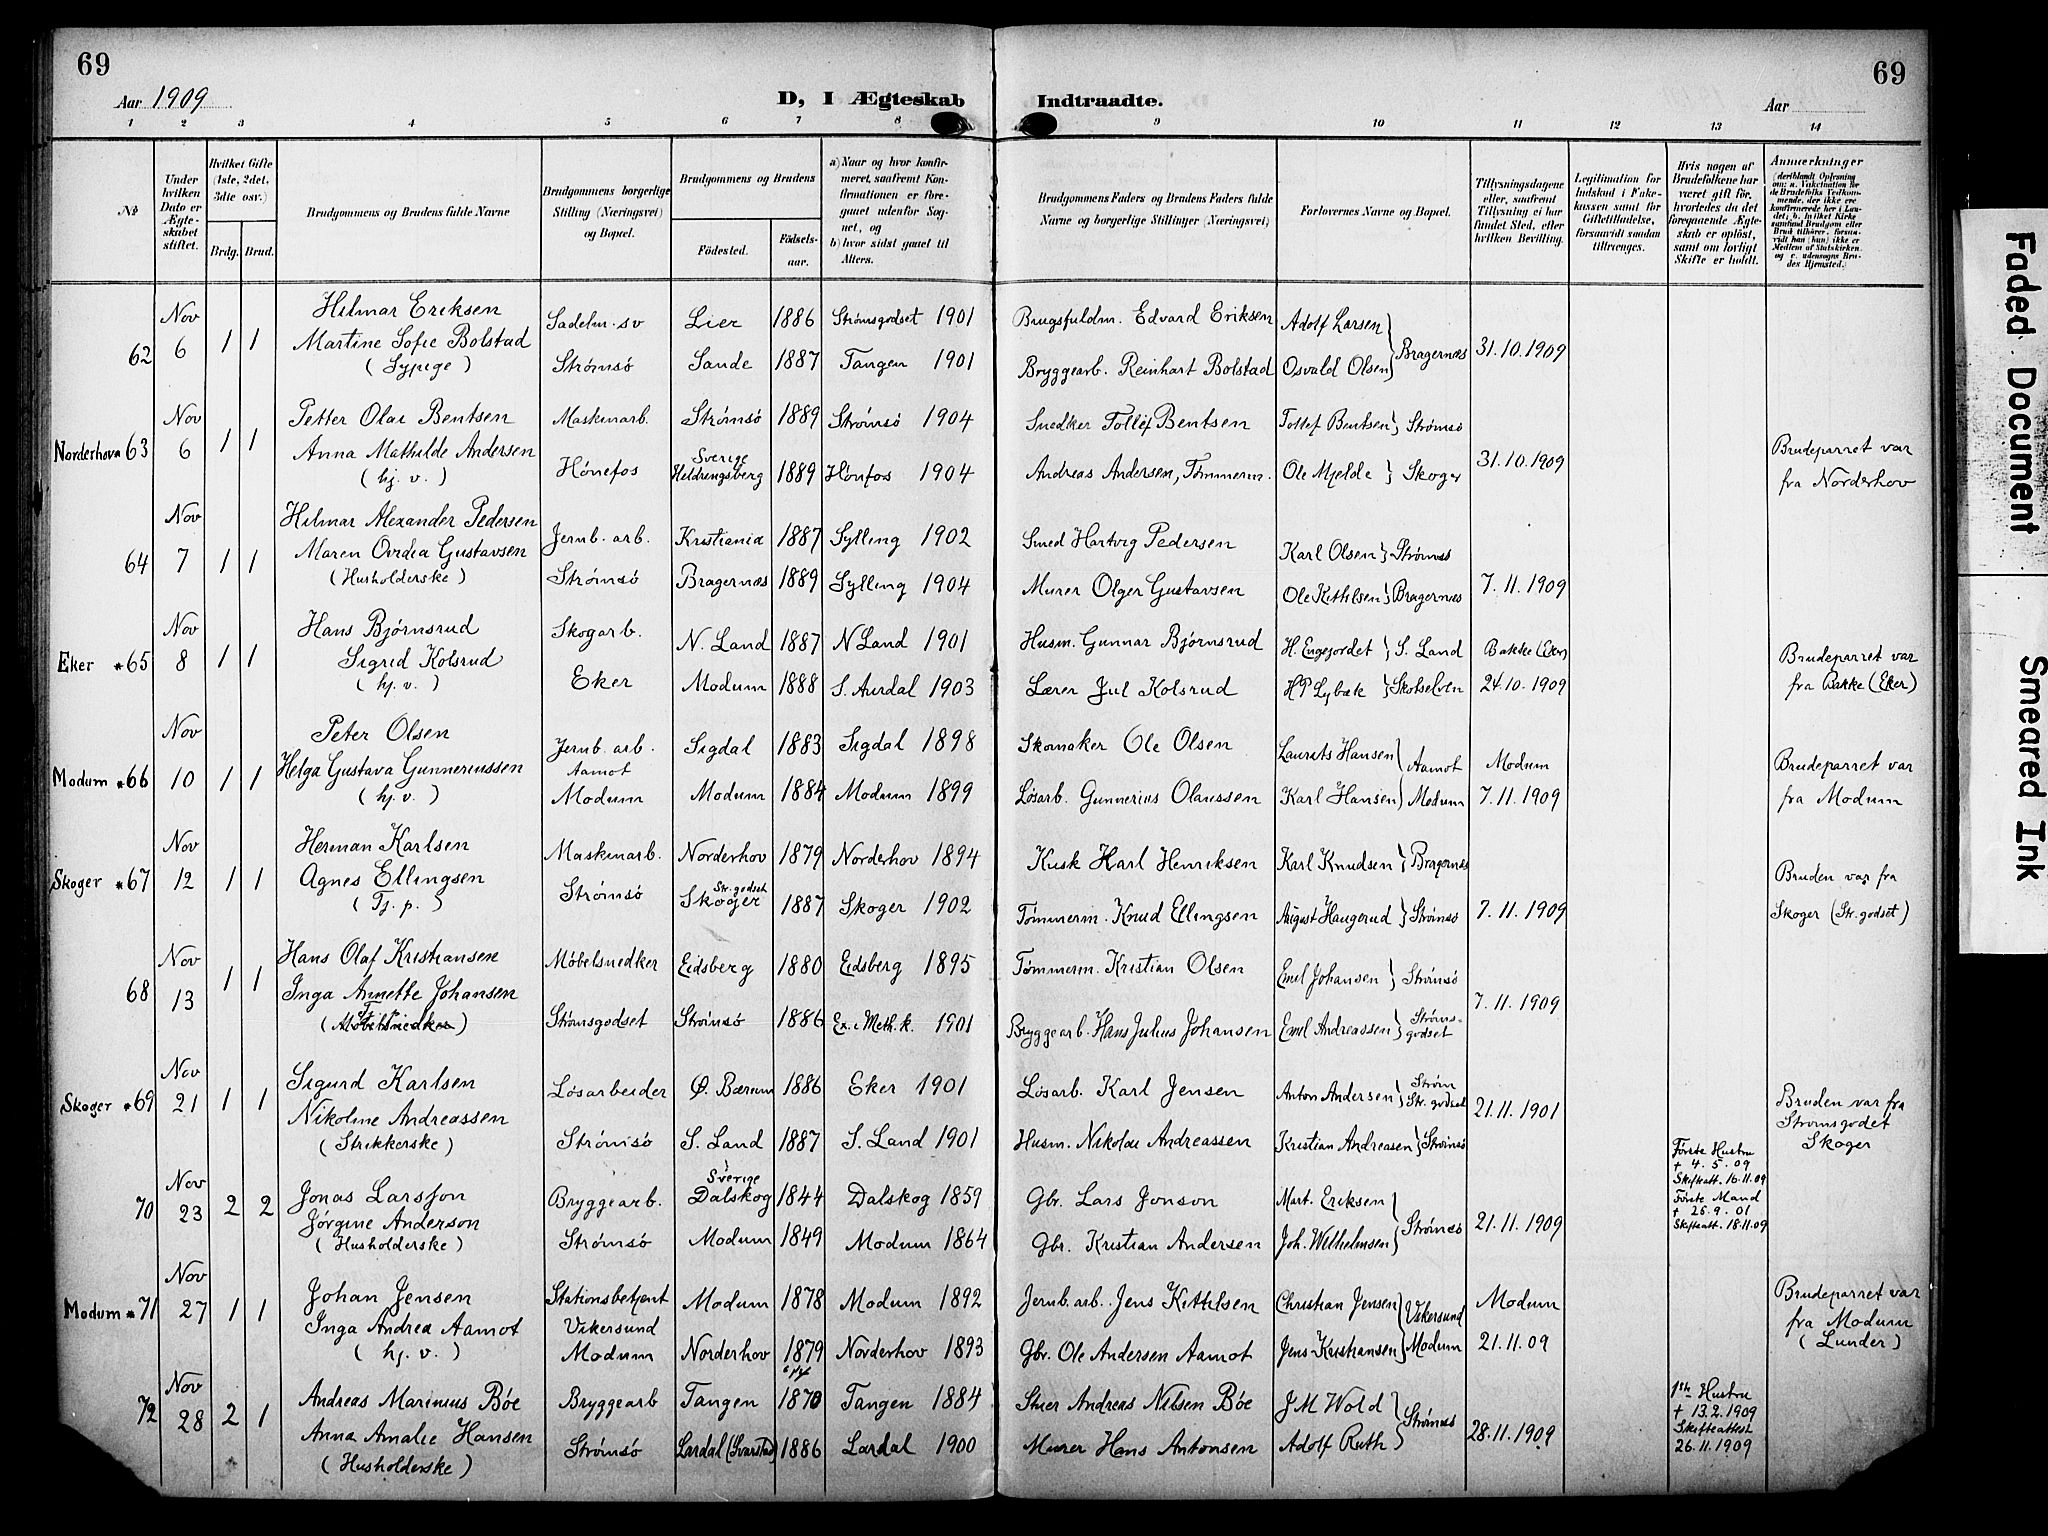 69
69
Aar 1909
D, I Ægteskab Indtraadte.
Aar
1 2 3 4 5 6 7 8 9 10 11 12 13 14
№
Under hvilken Dato er Ægteskabet stiftet.
Hvilket Gifte (1ste, 2det, 3die osv.)
Brdg. Brud.
Brudgommens og Brudens fulde Navne
Brudgommens borgerlige Stilling (Næringsvei) og Bopæl.
Brudgommens og Brudens
Födested.
Födselsaar.
a) Naar og hvor konfirmeret, saafremt Konfirmationen er foregaaet udenfor Sognet, og
b) hvor sidst gaaet til Alters.
Brudgommens Faders og Brudens Faders fulde Navne og borgerlige Stillinger (Næringsvei)
Forlovernes Navne og Bopæl.
Tillysningsdagene eller, saafremt Tillysning ei har fundet Sted, efter hvilken Bevilling.
Legitimation for Indskud i Enkekassen samt for Giftetilladelse, forsaavidt saadan tiltrænges.
Hvis nogen af Brudefolkene har været gift för, hvorledes da det foregaaende Ægteskab er oplöst, samt om lovligt Skifte er holdt.
Anmærkninger (deriblandt Oplysning om: a. Vakcination for de Brudefolks Vedkommende, der ikke ere konfirmerede her i Landet; b. hvilket Kirkesamfund Brudgom eller Brud tilhörer, forsaavidt han (hun) ikke er Medlem af Statskirken, og c. udensogns Brudes Hjemsted.)
62 Nov 6 1 1 Hilmar Eriksen Sadelm. sv Lier 1886 Strømsgodset 1901 Brugsfuldm. Edvard Eriksen Adolf Larsen
Martine Sofie Bolstad (Sypige) Strømsö Sande 1887 Tangen 1901 Bryggearb. Reinhart Bolstad Osvald Olsen } Bragernæs 31.10.1909
Norderhova 63 Nov 6 1 1 Petter Olai Bentsen Maskinarb. Strømsö 1889 Strømsö 1904 Snedker Tollef Bentsen Tollef Bentsen } Strømsö
Anna Mathilde Andersen (hj. v.) Hönefos Sverige 1889 Hönfos 1904 Andreas Andersen, Tömmerm. Ole Mjelde } Skoger 31.10.1909 Brudeparret var fra Norderhov
64 Nov 7 1 1 Hilmar Alexander Pedersen Jernb. arb. Kristiania 1887 Sylling 1902 Smed Hartvig Pedersen Karl Olsen } Strømsö
Maren Ovidia Gustavsen (Husholderske) Strømsö Bragernæs 1889 Sylling 1904 Murer Olger Gustavsen Ole Kittilsen } Bragernæs 7.11.1909
Eker * 65 Nov 8 1 1 Hans Bjørnsrud Skogarb. N. Land 1887 N Land 1901 Husm. Gunnar Bjørnsrud H. Engejordet } S. Land Bakke (Eker)
Sigrid Kolsrud (hj. v.) Eker Modum 1888 S. Aurdal 1903 Lærer Jul Kolsrud HP Lybæk } Skotselven 24.10.1909 Brudeparret var fra Bakke (Eker)
Modum * 66 Nov 10 1 1 Peter Olsen Jernb. arb. Sigdal 1883 Sigdal 1898 Skomaker Ole Olsen Laurits Hansen } Aamot Modum
Helga Gustava Gunneriussen (hj. v.) Aamot Modum Modum 1884 Modum 1899 Løsarb. Gunnerius Olaussen Karl Hansen } Modum 7.11.1909 Brudeparret var fra Modum
Skoger * 67 Nov 12 1 1 Herman Karlsen Maskinarb. Norderhov 1879 Norderhov 1894 Kusk Karl Henriksen Karl Knudsen } Bragernæs
Agnes Ellingsen (Tj. p.) Strømsö Skoger Str. godset 1887 Skoger 1902 Tømmerm. Knud Ellingsen August Haugerud } Strømsö 7.11.1909 Bruden var fra Skoger (Str. godset)
68 Nov 13 1 1 Hans Olaf Kristiansen Møbelsnedker Eidsberg 1880 Eidsberg 1895 Tømmerm. Kristian Olsen Emil Johansen } Strømsö
Inga Annette Johansen (Møbelsnedker) Strømsgodset Strømsö 1886 Ex. i Meth. k. 1901 Bryggearb. Hans Julius Johansen Emil Andreassen } Strømsgodset 7.11.1909
Skoger * 69 Nov 21 1 1 Sigurd Karlsen Løsarbeider Ø. Bærum 1886 Eker 1901 Løsarb. Karl Jensen Anton Andersen } Strøm Str. godset
Nikoline Andreassen (Strikkerske) Strømsö S. Land 1887 S. Land 1901 Husm. Nikolai Andreassen Kristian Andreasen } Strømsö 21.11.1901 Bruden var fra Strømsgodet Skoger
70 Nov 23 2 2 Jonas Larsson Bryggearb. Sverige Dalskog 1844 Dalskog 1859 Gbr. Lars Jonson Mart. Eriksen
Jørgine Anderson (Husholderske) Strømsö Modum 1849 Modum 1864 Gbr. Kristian Andersen Joh. Wilhelmsen } Strømsö 21.11.1909
Første Hustru + 4.5.09 Skifteatt. 16.11.09 Første Mand + 26.9.01 Skifteatt. 18.11.09
Modum * 71 Nov 27 1 1 Johan Jensen Stationsbetjent Modum 1878 Modum 1892 Jernb. arb. Jens Kittilsen Christian Jensen } Vikersund Modum
Inga Andrea Aamot (hj. v.) Vikersund Modum Norderhov 1879 Norderhov 1893 Gbr. Ole Andersen Aamot Jens Kristiansen } Modum 21.11.09 Brudeparret var fra Modum (Lunder)
72 Nov 28 2 1 Andreas Marinius Bøe Bryggearb Tangen 1870 Tangen 1884 Andreas Nilsen Bøe J M Wold
Anna Amalie Hansen (Husholderske) Strømsö Lardal (Svarstad) 1886 Lardal 1900 Murer Hans Antonsen Adolf Ruth } Strømsö 28.11.1909
1ste Hustru + 13.2.1909 Skifteattest 26.11.1909
Faded Document
Smeared Ink